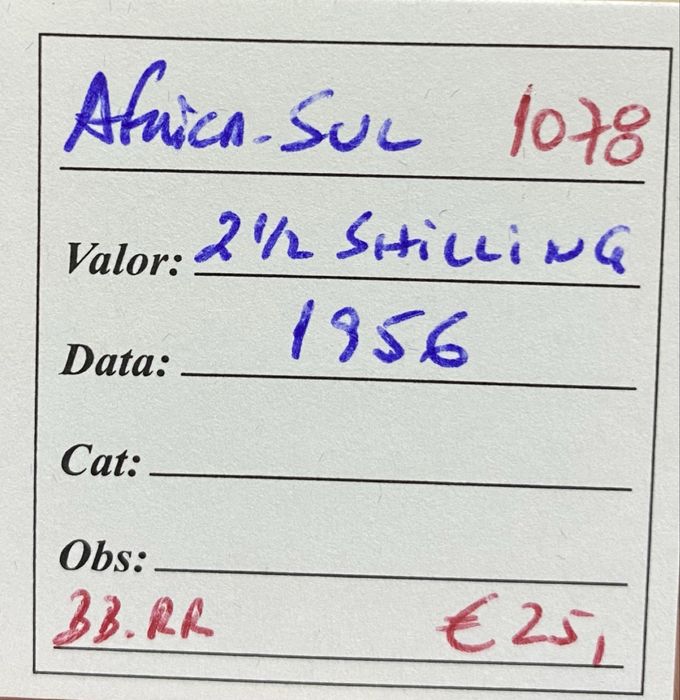 Africa-SUL 1078
Valor: 2 1/2 SHiLLiNG
Data: 1956
Cat:
Obs:
BB.RR €25,